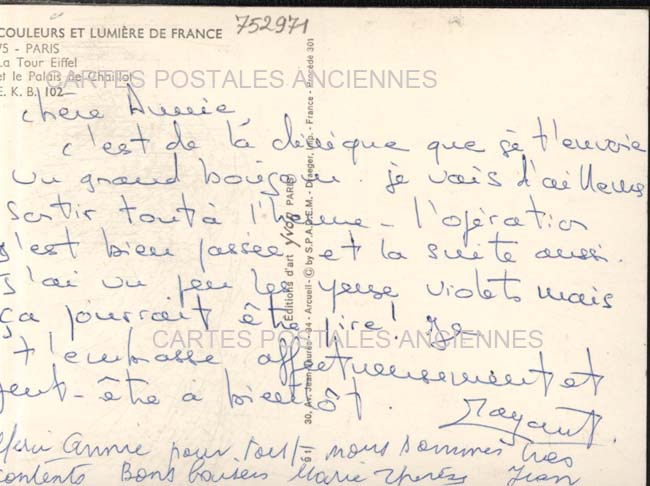 COULEURS ET LUMIÈRE DE FRANCE
752971
75 - PARIS
La Tour Eiffel
et le Palais de Chaillot
E. K. B. 102
CARTES POSTALES ANCIENNES
chère Annie
c'est de la clinique que je t'envoie
un grand boujour. je vais d'ailleurs
sortir tout à l'heure - l'opération
s'est bien passée et la suite aussi.
J'ai un peu les yeux violets mais
ça pourrait être pire! Je
CARTES POSTALES ANCIENNES
t'embrasse affectueusement et
peut-être à bientôt.
Merci Annie pour tout - nous sommes très
contents Bons baisers Marie Thérèse Jean
Editions d'art yvon PARIS
30, Av. Jean-Jaurès - 94 - Arcueil - © by S.P.A.D.E.M. - Draeger, Imp. - France - Procédé 301